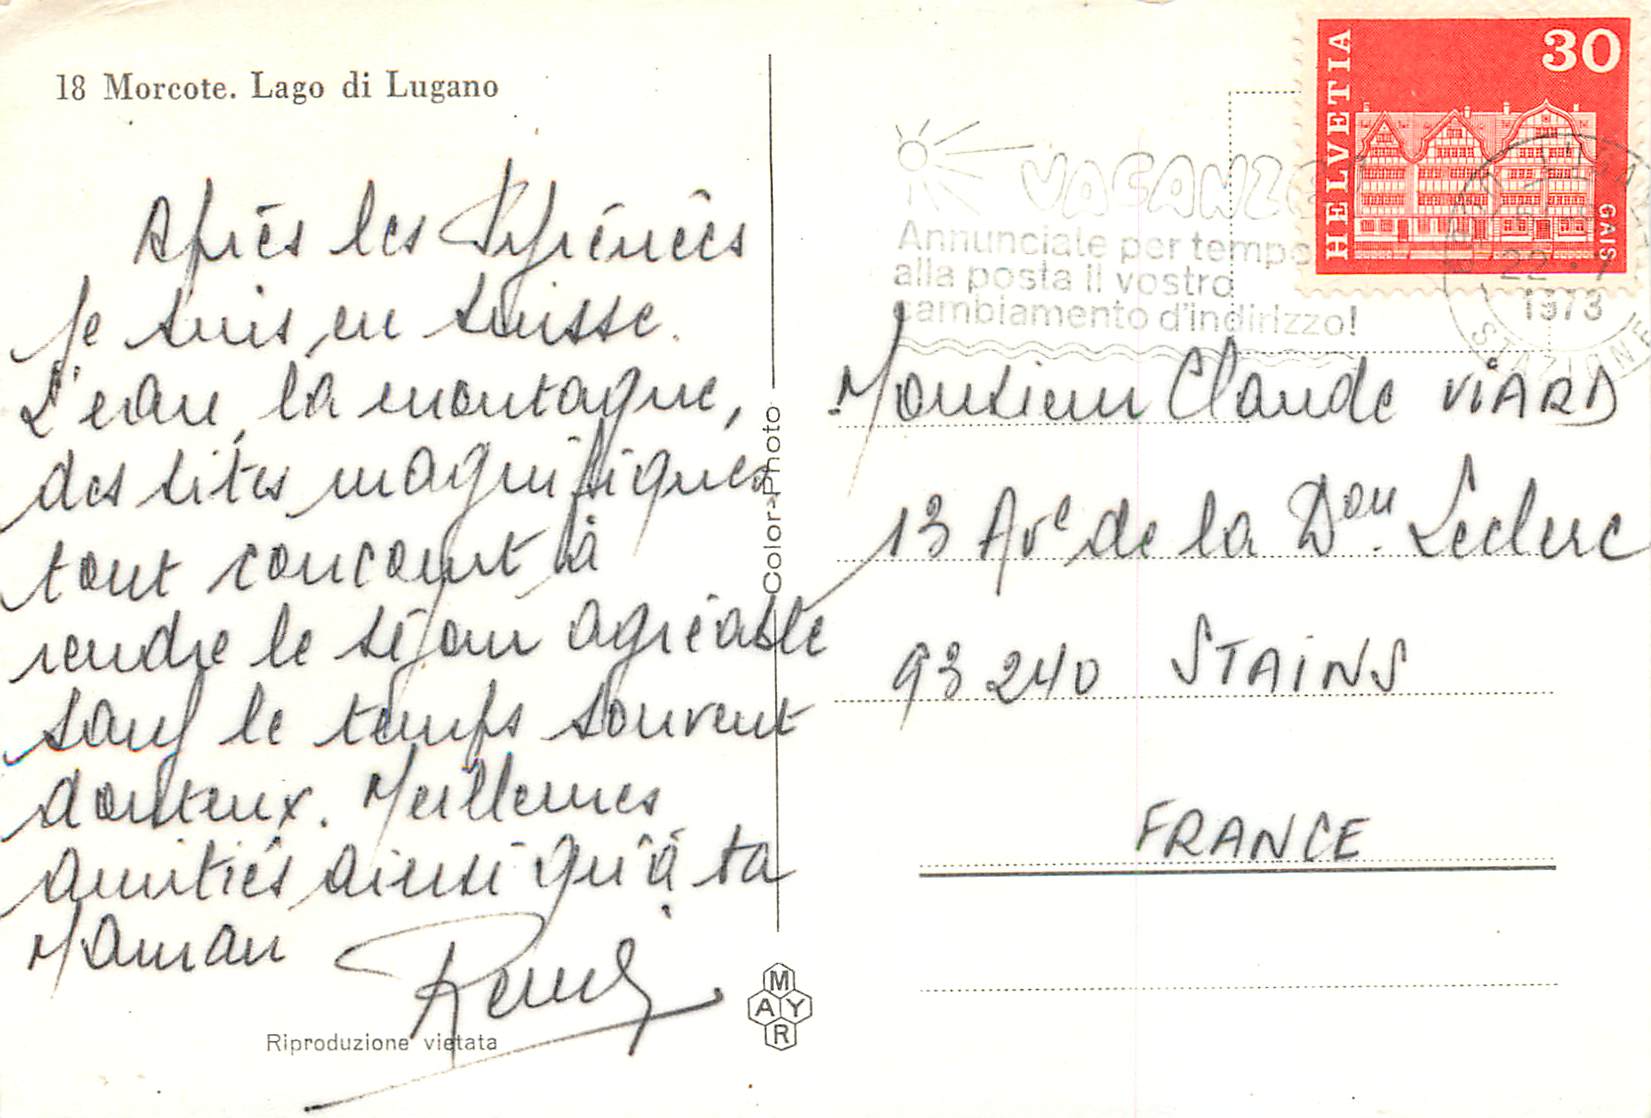 18 Morcote. Lago di Lugano
Après les Pyrénées
je suis en Suisse.
L'eau, la montagne,
des sites magnifiques
tout concourt à
rendre le séjour agréable
sauf le temps souvent
douteux. Meilleures
amitiés ainsi qu'à ta
Maman
Riproduzione vietata
Color-Photo
MAYR
HELVETIA
30
GAIS
VACANZE
Annunciate per tempo
alla posta il vostro
cambiamento d'indirizzo!
22
1973
STAZIONE
Monsieur Claude VIARD
13 Ave de la Don. Leclerc
93240 STAINS
FRANCE